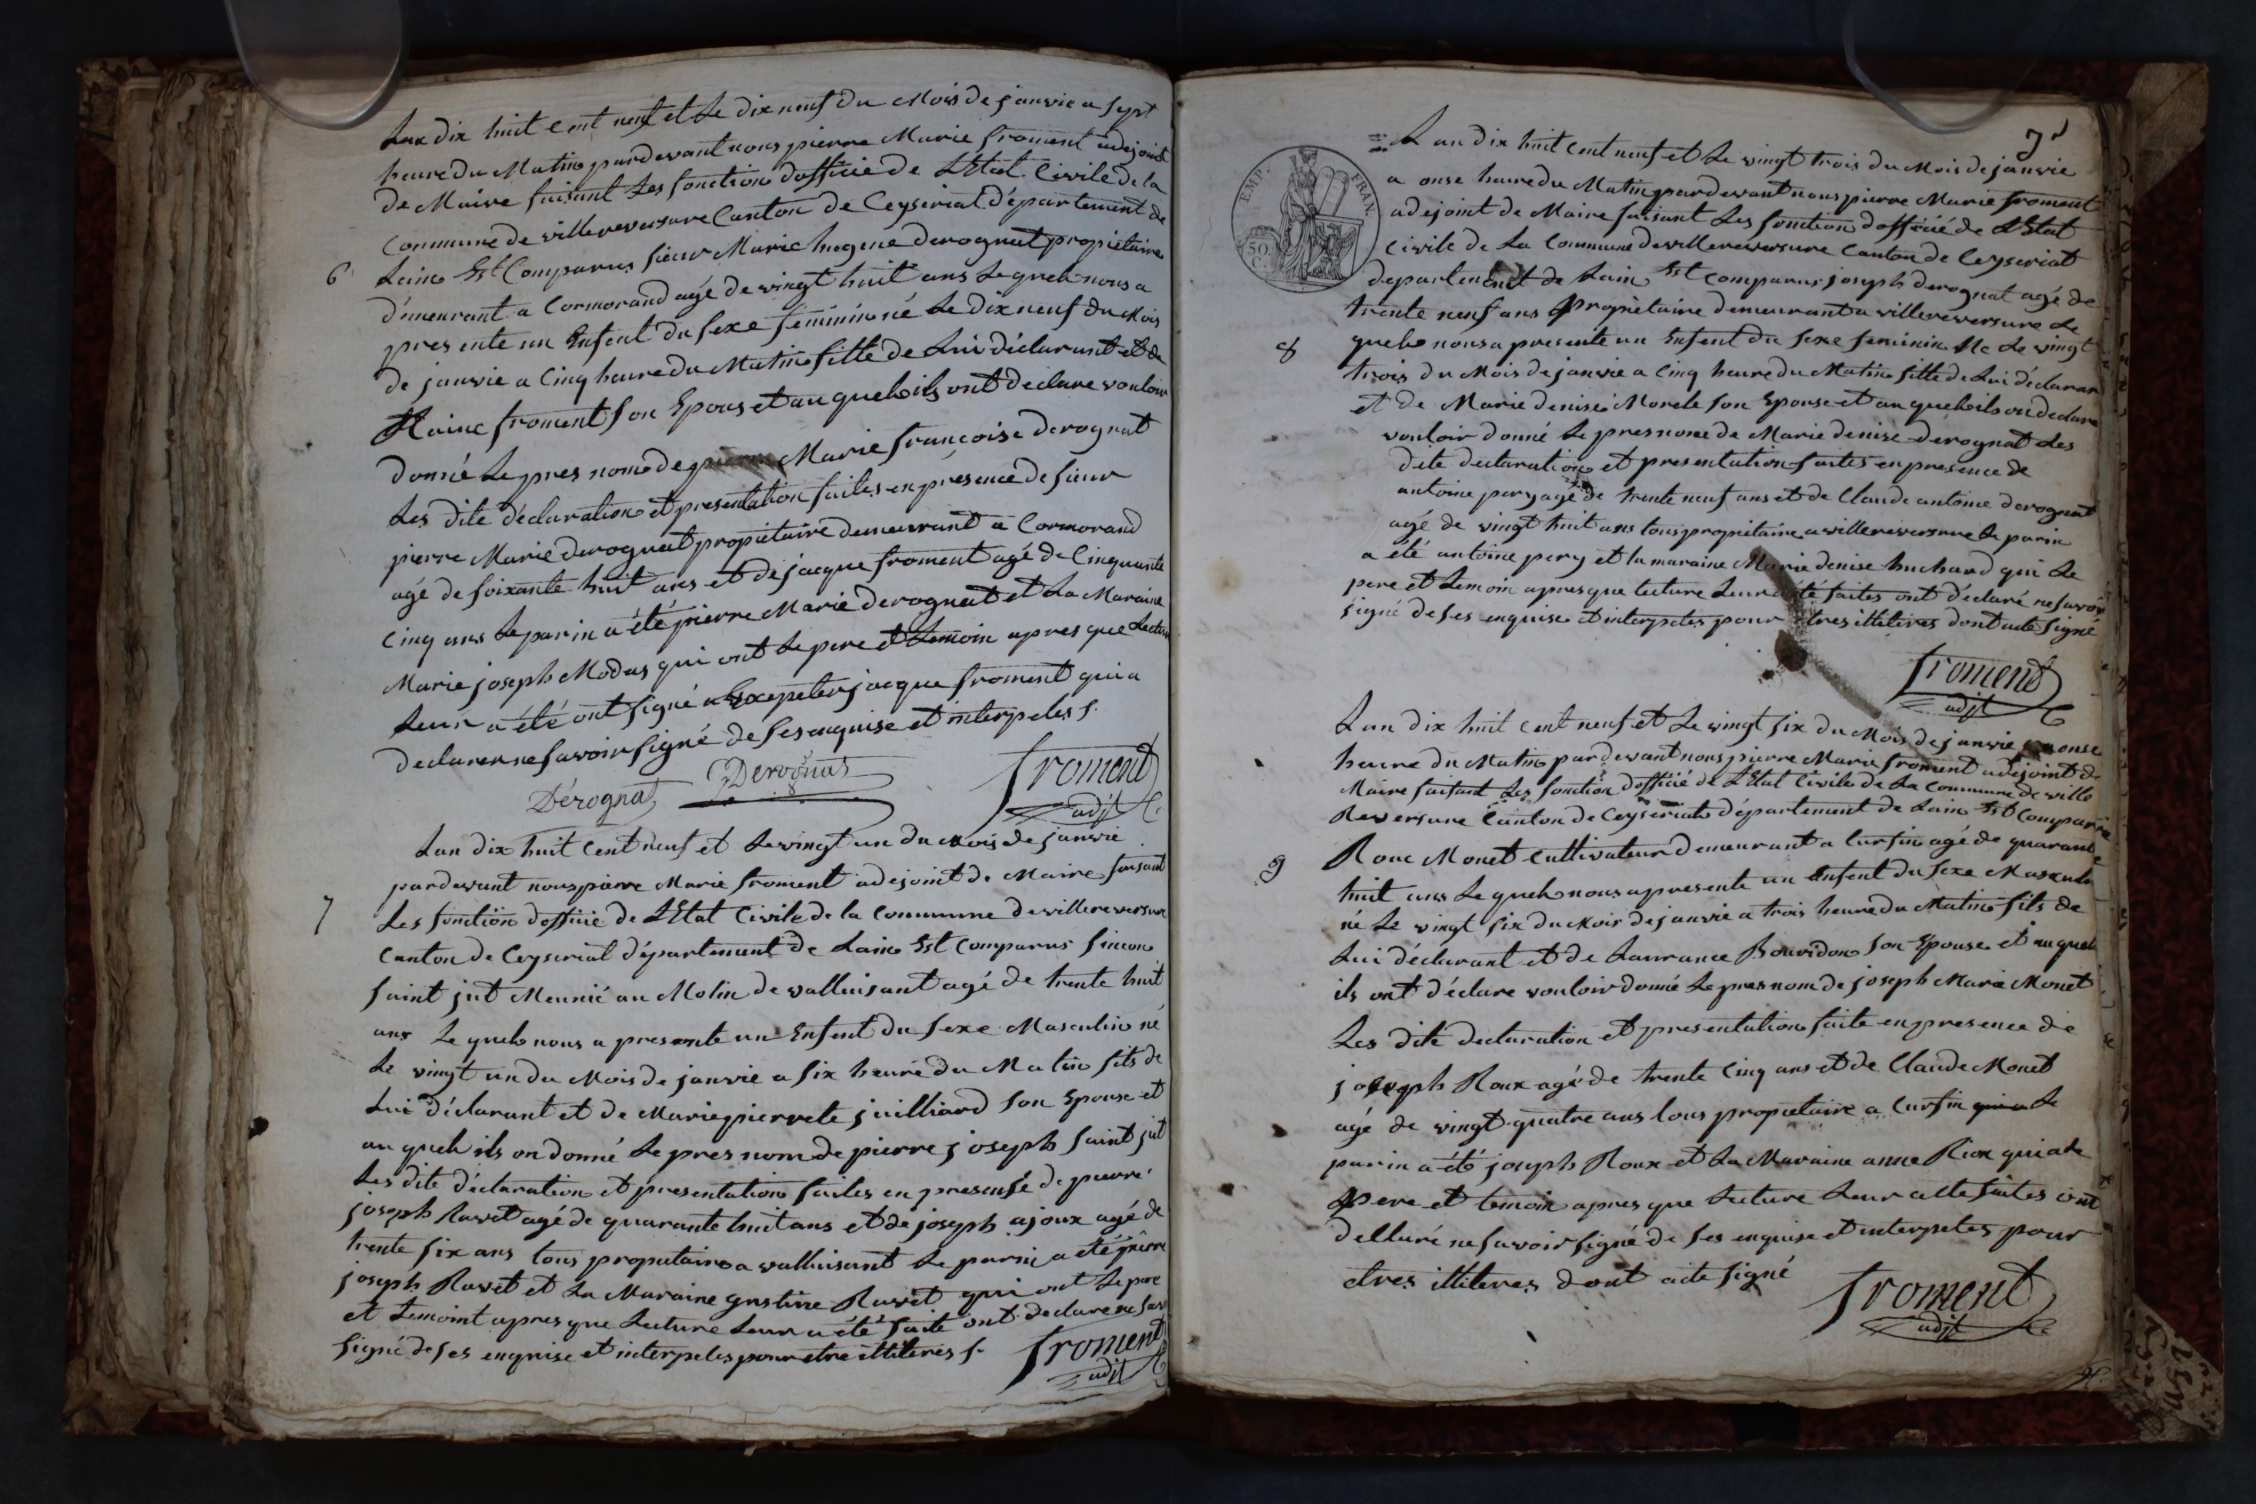 Lan dix huit Cent neuf et Le dix neuf du Mois de janvie a sept
heure du Matin pardevant nous pierre Marie froment adejoint
de Maire faisant Les fonction dofficié de LEtat Civile de la
Commune de villereversure Canton de Ceyseriat département de
6
Lain Est Comparus sieur Marie hugene derognat propiétaire
démeurant a Cormorand agé de vingt huit ans Le quel nous a
presente un Enfent du sexe féminin né Le dix neuf du Mois
de janvie a Cinq heure du Matin fille de Lui déclarant et de
froment son Epous et au quel ils ont declare vouloir
donné Le pres nom de Marie françoise derognat
Les dite déclaration et presentation faites en présence de sieur
pierre Marie derognat propiétaire demeurrant a Cormorand
agé de soixante huit ans et de jacque froment agé de Cinquante
Cinq ans Le parin a été pierre Marie derognat et La Maraine
Marie joseph Modas qui ont Le pere et Temoin apres que Lecture
Leur a été ont signé a Exepeter jacque froment qui a
declarer ne savoir signé de ses enquise et interpeles s.
Dérognat Derognat froment
adjt
Lan dix huit Cent neuf et Le vingt un du Mois de janvie
pardevant nous pierre Marie froment adejoint de Maire faisant
7
Les fonction dofficié de LEtat Civile de la Commune de villereversure
Canton de Ceyseriat département de Lain Est Comparus simon
saint jut Meunié au Molin de valluisant agé de trente huit
ans Le quel nous a presente un Enfent du sexe Masculin né
Le vingt un du Mois de janvie a six heure du Matin fils de
Lui déclarant et de Marie pierrete juilliard son Epouse et
au quel ils on donné Le pres nom de pierre joseph saint jut
Les dite déclaration et presentation faites en presense de pierre
joseph Ravet agé de quarante huit ans et de joseph ajoux agé de
trente six ans tous propietaire a valluisant Le parin a été pierre
joseph Ravet et La Maraine gustine Ravet qui ont Le pere
et Temoint apres que Lecture Leur a été faite ont declare ne sav
signé de ses enquise et interpeles pour etre illiteres s.
froment
adjt
7
Lan dix huit Cent neuf et Le vingt trois du Mois de janvie
EMP. FRAN.
50
a onse heure du Matin pardevant nous pierre Marie froment
adejoint de Maire faisant Les fonction dofficié de LEtat
Civile de La Commune de villereversure Canton de Ceyseriat
departement de Lain Est Comparus joseph derognat agé de
trente neuf ans propriètaire demeurant a villereversure Le
8
quel nous a presenté un Enfent du sexe feminin Ne Le vingt
trois du Mois de janvie a Cinq heure du Matin fille de Lui déclaran
et de Marie denise Morele son Epouse et au quel ils on declare
vouloir donné Le pres nom de Marie denise derognat Les
dite declaration et presentation faites en presence de
antoine pery agé de trente neuf ans et de Claude antoine derognat
agé de vingt huit ans tous propiétaire a villereversure Le parin
a été antoine pery et la maraine Marie denise huchard qui Le
pere et Temoin apres que lecture Leur été faites ont déclaré ne savoir
signé de ses enquise et interpeles pour etres illiteres dont acte signé
froment
adjt
Lan dix huit Cent neuf et Le vingt six du Mois de janvie a onse
heure du Matin pardevant nous pierre Marie froment adejoint de
Maire faisant Les fonction dofficié de LEtat Civile de La Commune de ville
Reversure Canton de Ceyseriat département de Lain Est Comparu
9
Monet Cultivateur demeurant a Cursin agé de quarante
huit ans Le quel nous a presente un Enfent du sexe Masculin
né Le vingt six du Mois de janvie a trois heure du Matin fils de
Lui déclarant et de Laurance Bouvidon son Epouse et au quel
ils ont déclare vouloir donné Le pres nom de joseph Marie Monet
Les dite declaration et presentation faite en presence de
joseph Roux agé de trente Cinq ans et de Claude Monet
agé de vingt quatre ans tous propietaire a Cursin Le
parin a été joseph Roux et La Maraine anne Roux qui a Le
pere et temoin apres que Lecture Leur faites ont
declaré ne savoir signé de ses enquise et interpeles pour
etres illiteres dont acte signé
froment
adjt